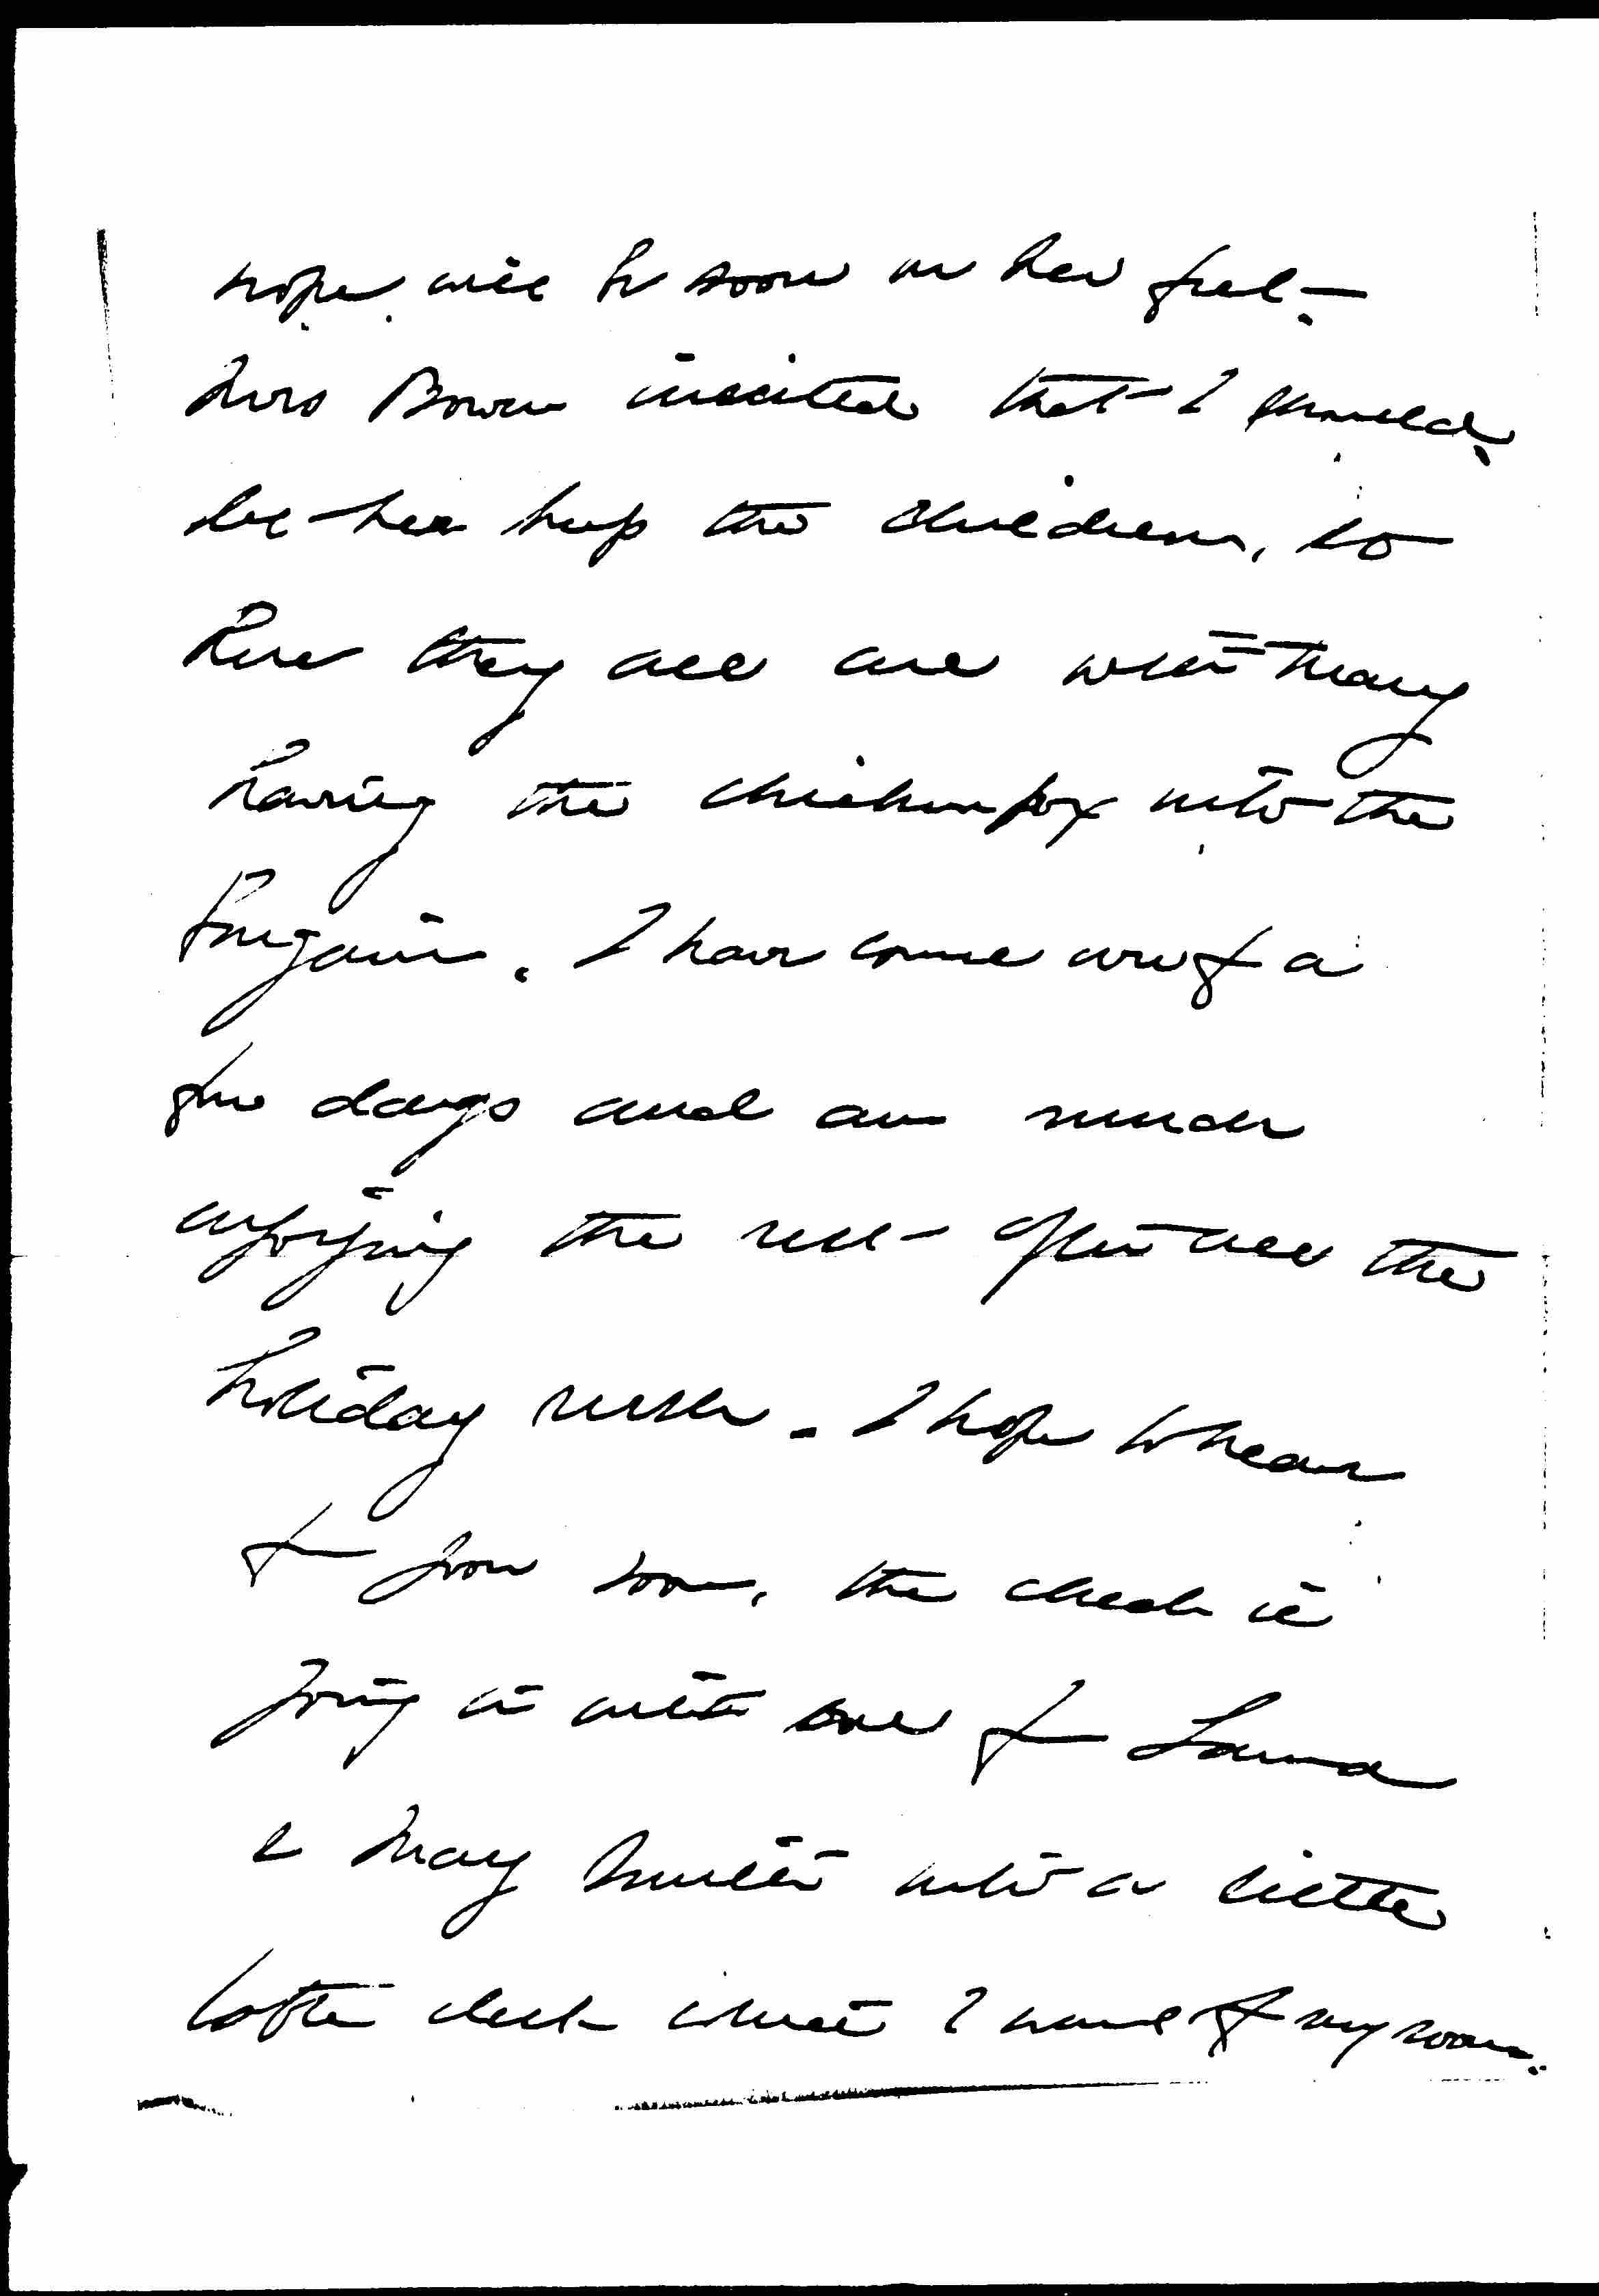 hope will be soon on her feet.
Mrs Bowen insisted that I should
let her keep the children, so
here they all are with Mary
having the chicken pox into the
bargain. I have come over for a
few days and am much
enjoying the rest after all the
holiday rush. I hope to hear
from soon, the check is
going in with one for Laura
& May Smith into a little
coffee which I want for my room.